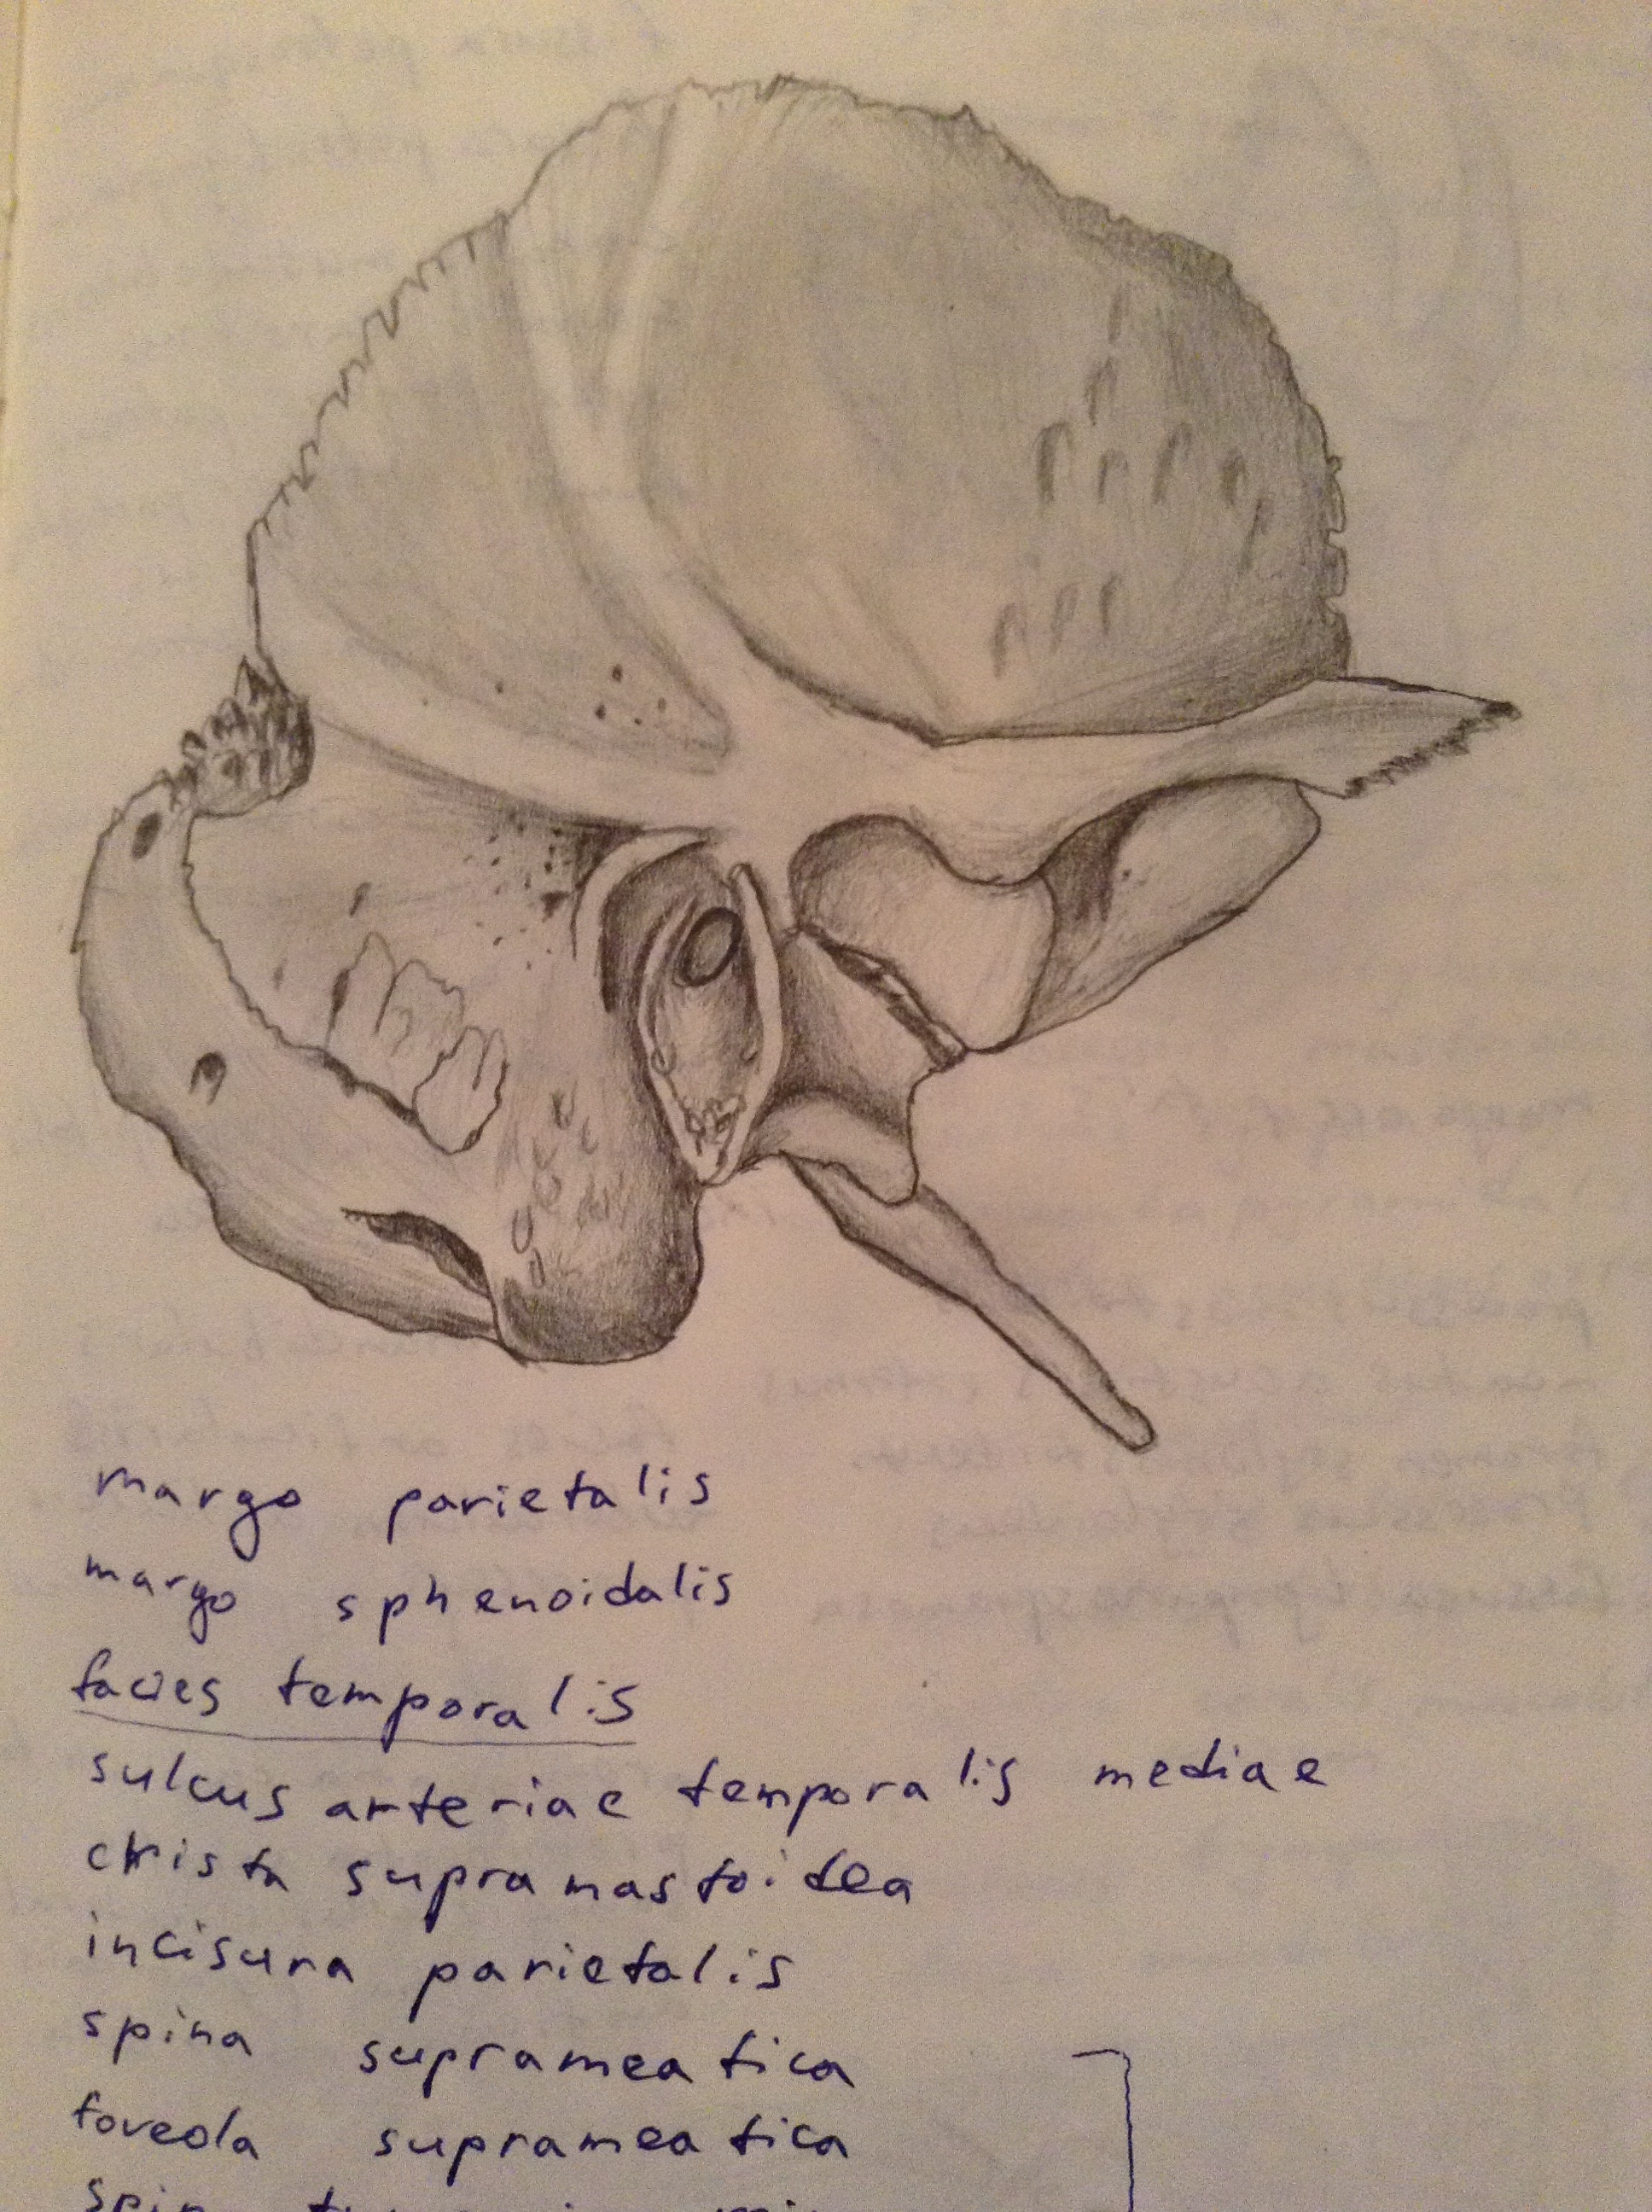 margo parietalis
margo sphenoidalis
facies temporalis
sulcus arteriae temporalis mediae
christa supramastoidea
incisura parietalis
spina suprameatica
foveola suprameatica